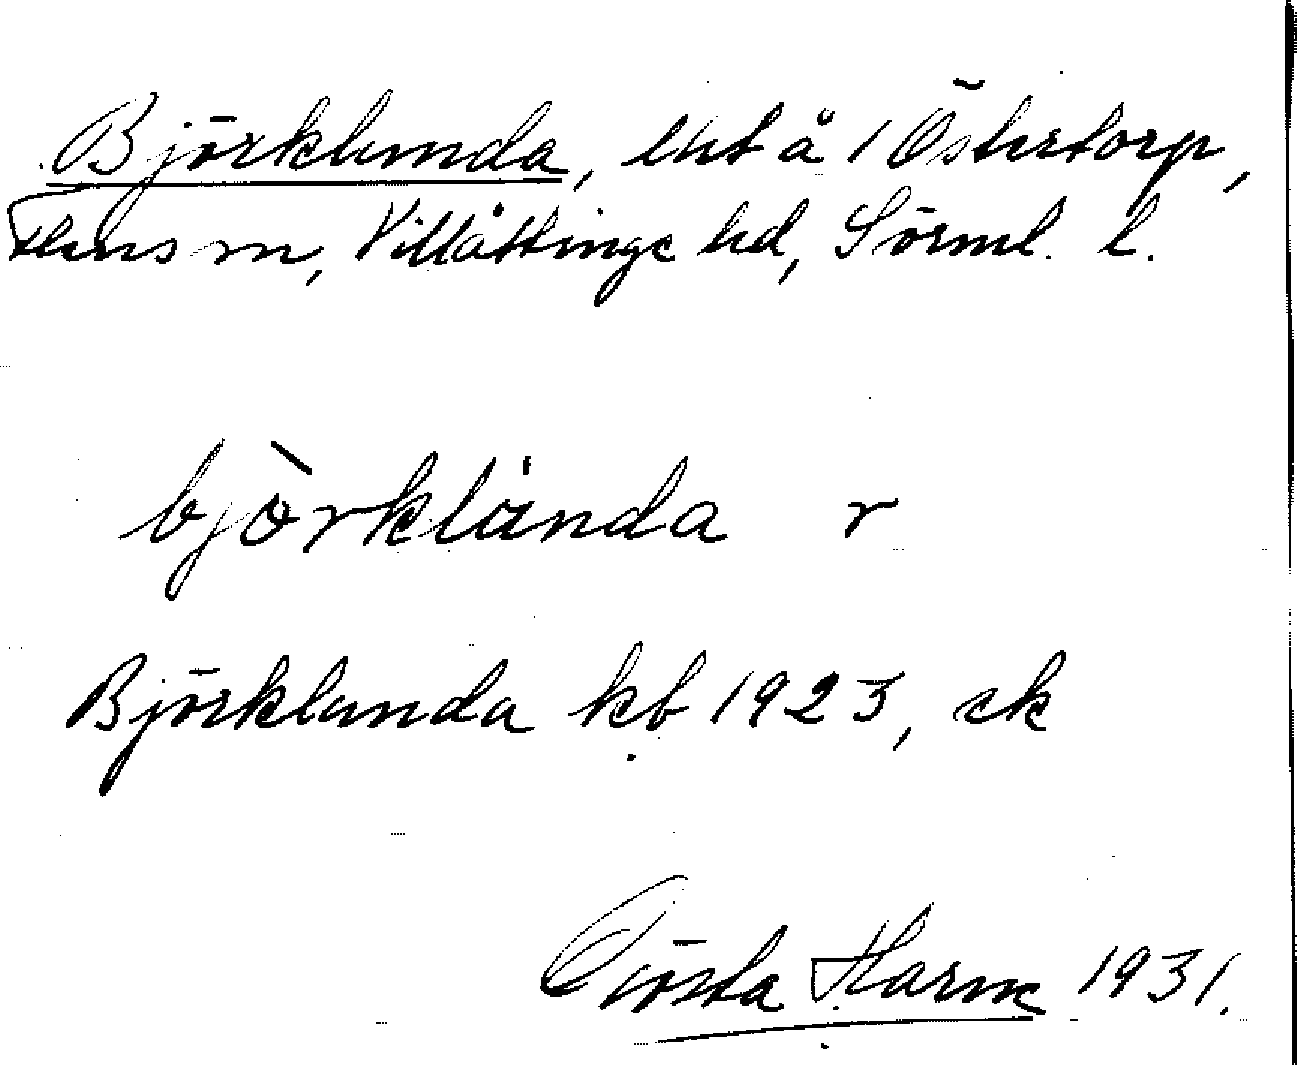 Björklunda, lht å 1 Östertorp,
Flens sn, Villåttinge hd, Sörml. l.
bjòrklúnda r
Björklunda kb 1923, ek
Gösta Harne 1931.